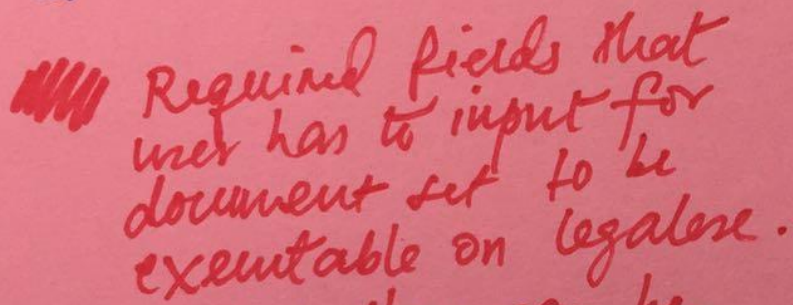 Required fields that
user has to input for
document set to be
executable on legalese.